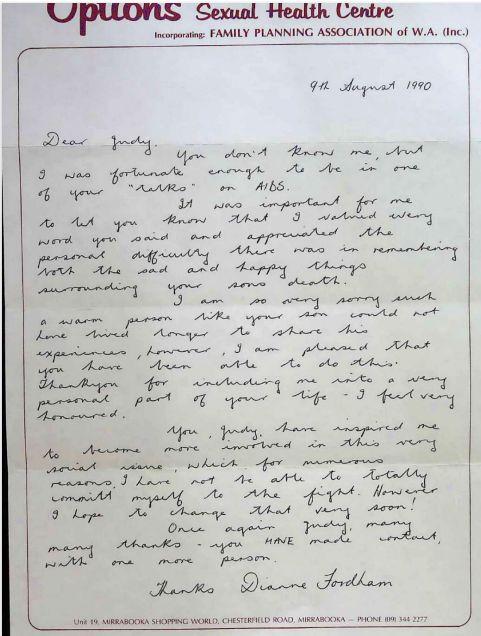 Options Sexual Health Centre
Incorporating: FAMILY PLANNING ASSOCIATION of W.A. (Inc.)
9th August 1990
Dear Judy,
You don't know me, but
I was fortunate enough to be in one
of your "talks" on AIDS.
It was important for me
to let you know that I valued every
word you said and appreciated the
personal difficulty there was in remembering
both the sad and happy things
surrounding your sons death.
I am so very sorry such
a warm person like your son could not
have lived longer to share his
experiences, however, I am pleased that
you have been able to do this.
Thankyou for including me into a very
personal part of your life - I feel very
honoured.
You, Judy, have inspired me
to become more involved in this very
social issue, which for numerous
reasons, I have not be able to totally
committ myself to the fight. However
I hope to change that very soon!
Once again Judy, many
many thanks - you HAVE made contact,
with one more person.
Thanks Dianne Fordham
Unit 19, MIRRABOOKA SHOPPING WORLD, CHESTERFIELD ROAD, MIRRABOOKA — PHONE (09) 344 2277